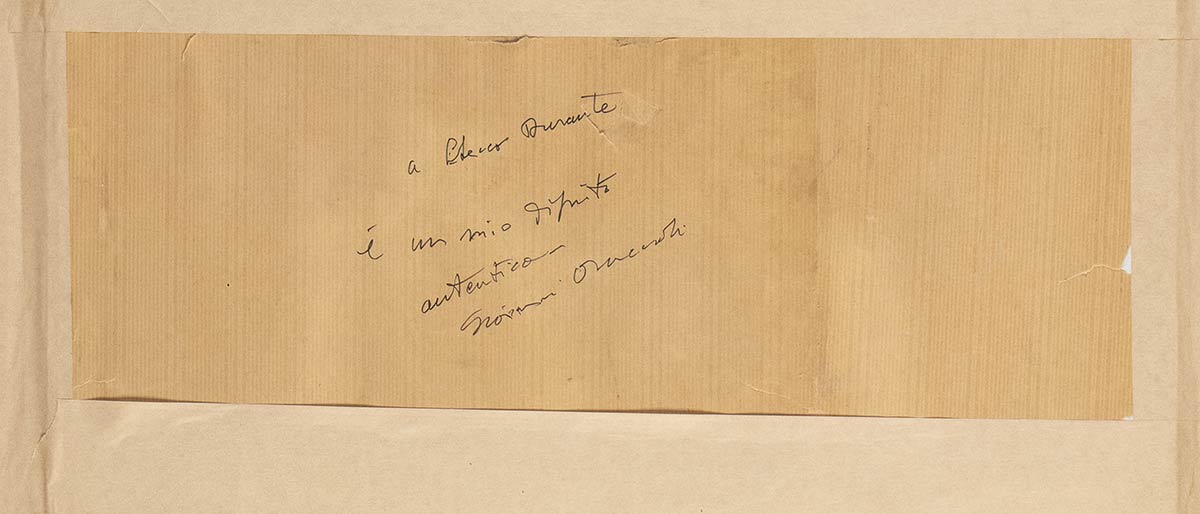 a Durante
è un mio dipinto
autentico -
Giovanni Omiccioli